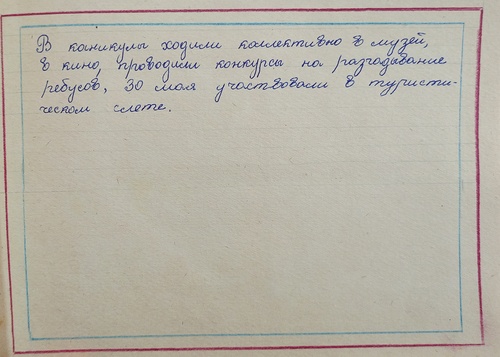 В каникулы ходили коллективно в музей,
в кино, проводили конкурсы на разгадывание
ребусов, 30 мая участвовали в туристи-
ческом слете.